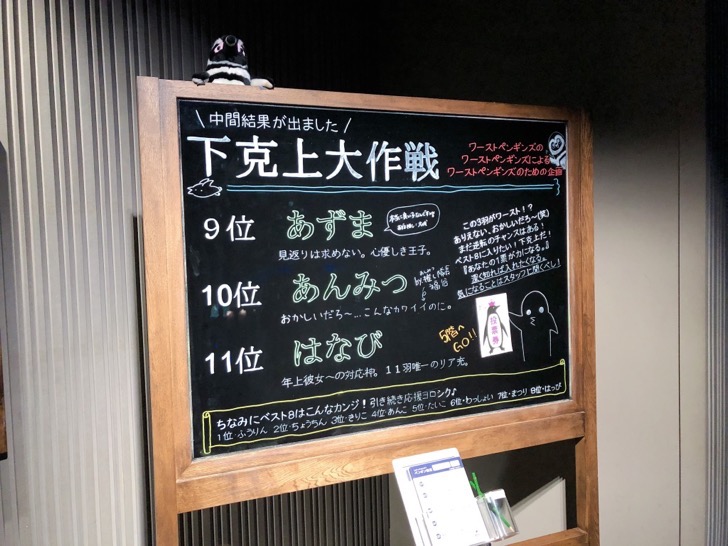 \ 中間結果が出ました /
下克上大作戦
ワーストペンギンズの
ワーストペンギンズによる
ワーストペンギンズのための企画
9位 あずま
見返りは求めない。心優しき王子。
10位 あんみつ
おかしいだろ〜…こんなカワイイのに。
11位 はなび
年上彼女への対応神。11羽唯一のリア充。
この3羽がワースト!?
ありえない、おかしいだろ〜(笑)
まだ逆転のチャンスはある!
ベスト8に入りたい!下克上だ!
『あなたの1票が力になる。』
深く知れば入れたくなる。
気になることはスタッフに聞くべし!
投票券
5階へ
GO!!
ちなみにベスト8はこんなカンジ!引き続き応援ヨロシク♪
1位・ふうりん 2位・ちょうちん 3位・きりこ 4位・あんこ 5位・たいこ 6位・わっしょい 7位・まつり 8位・はっぴ